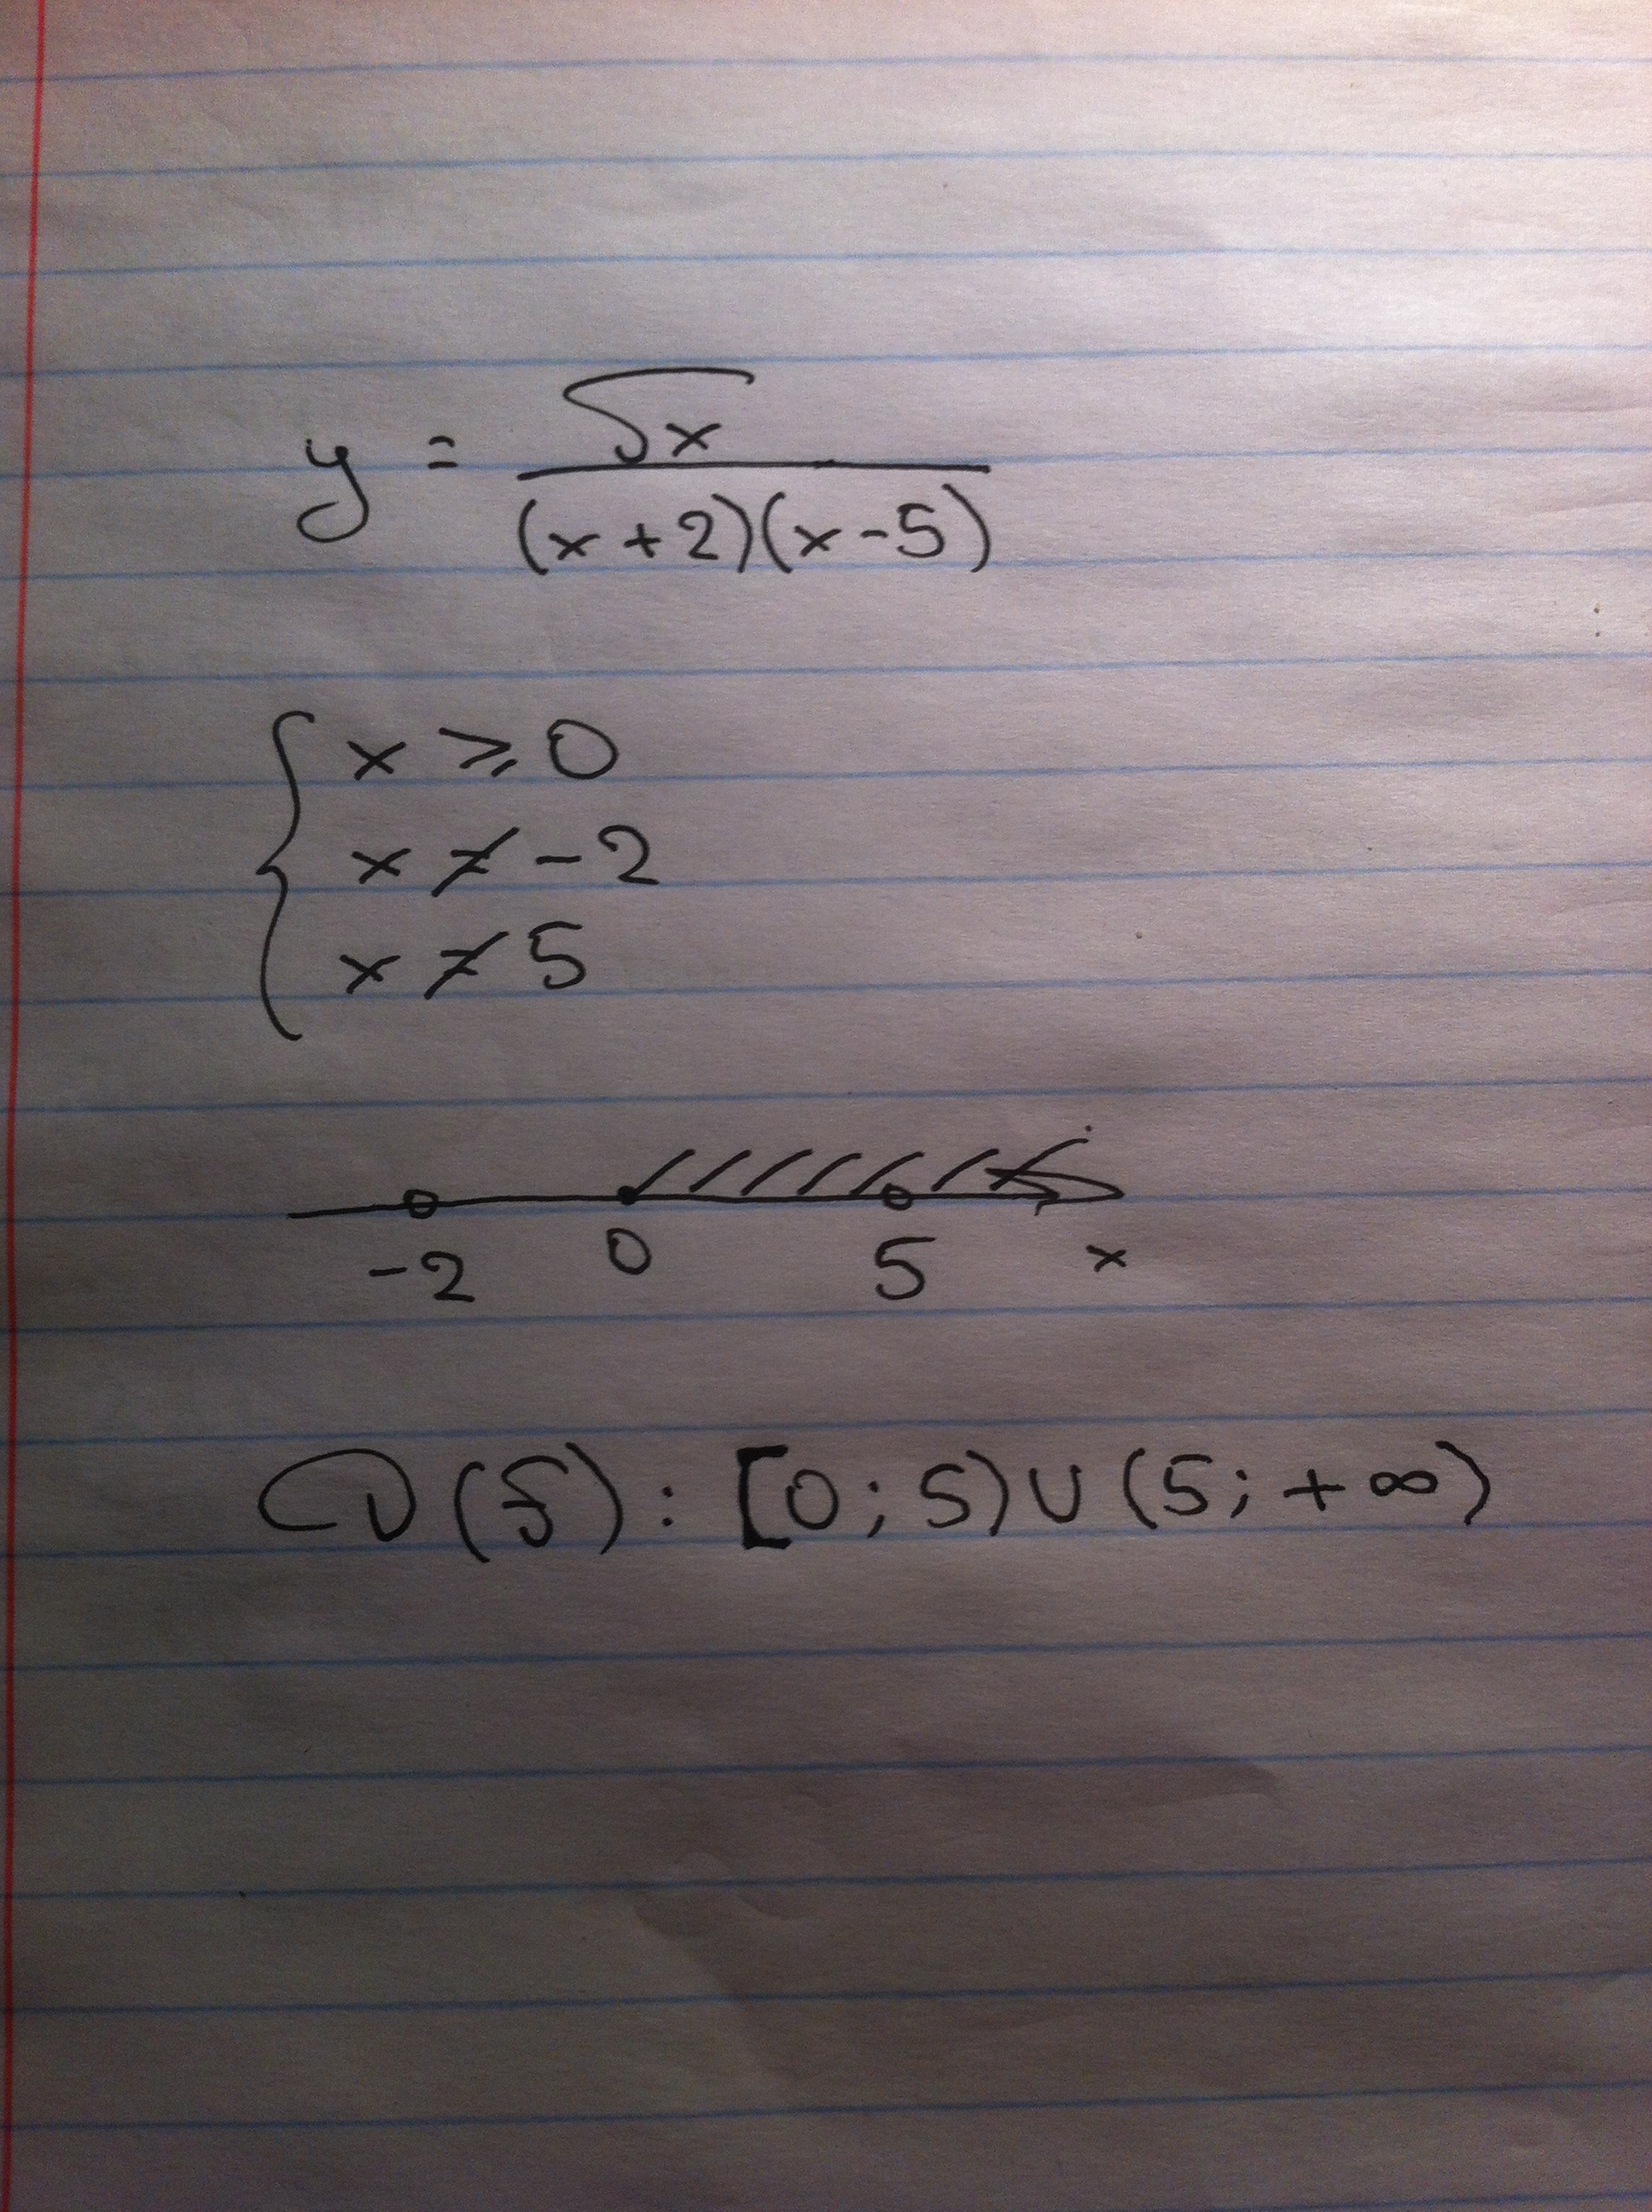 y = √x / (x+2)(x-5)
{ x ⩾ 0
x ≠ -2
x ≠ 5
-2 0 5 x
D(f): [0; 5) ∪ (5; +∞)